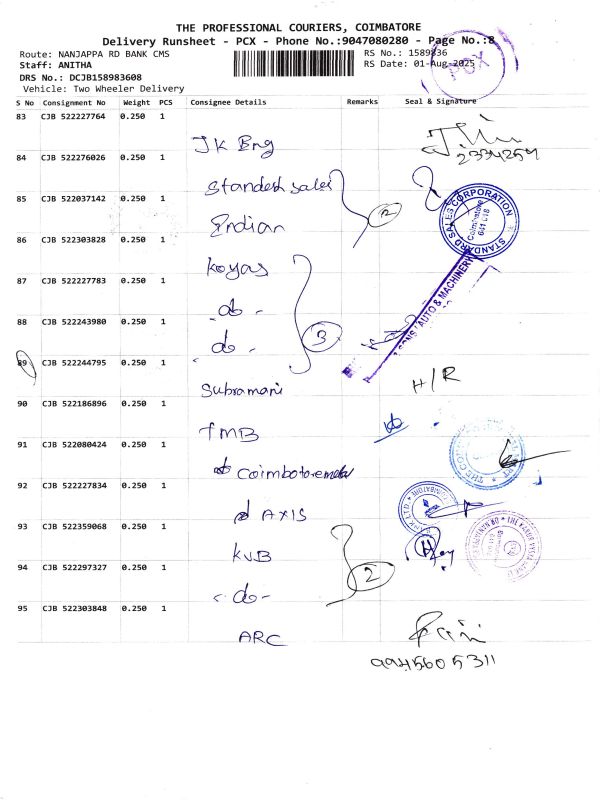 THE PROFESSIONAL COURIERS, COIMBATORE
Delivery Runsheet - PCX - Phone No.:9047080280 - Page No.:8
Route: NANJAPPA RD BANK CMS RS No.: 1589836
Staff: ANITHA RS Date: 01-Aug-2025
PCX
DRS No.: DCJB158983608
Vehicle: Two Wheeler Delivery
S No Consignment No Weight PCS Consignee Details Remarks Seal & Signature
83 CJB 522227764 0.250 1
JK Eng
2334259
84 CJB 522276026 0.250 1
Standesh sales
2
85 CJB 522037142 0.250 1
Indian
STANDARD SALES CORPORATION
Coimbatore
641 018
86 CJB 522303828 0.250 1
Koyas
87 CJB 522227783 0.250 1
- do -
AUTO & MACHINERY
88 CJB 522243980 0.250 1
- do -
3
89 CJB 522244795 0.250 1
Subramani
H/R
90 CJB 522186896 0.250 1
TMB
91 CJB 522080424 0.250 1
Coimbatore
92 CJB 522227834 0.250 1
AXIS
93 CJB 522359068 0.250 1
KVB
2
94 CJB 522297327 0.250 1
- do -
95 CJB 522303848 0.250 1
ARC
9945605311